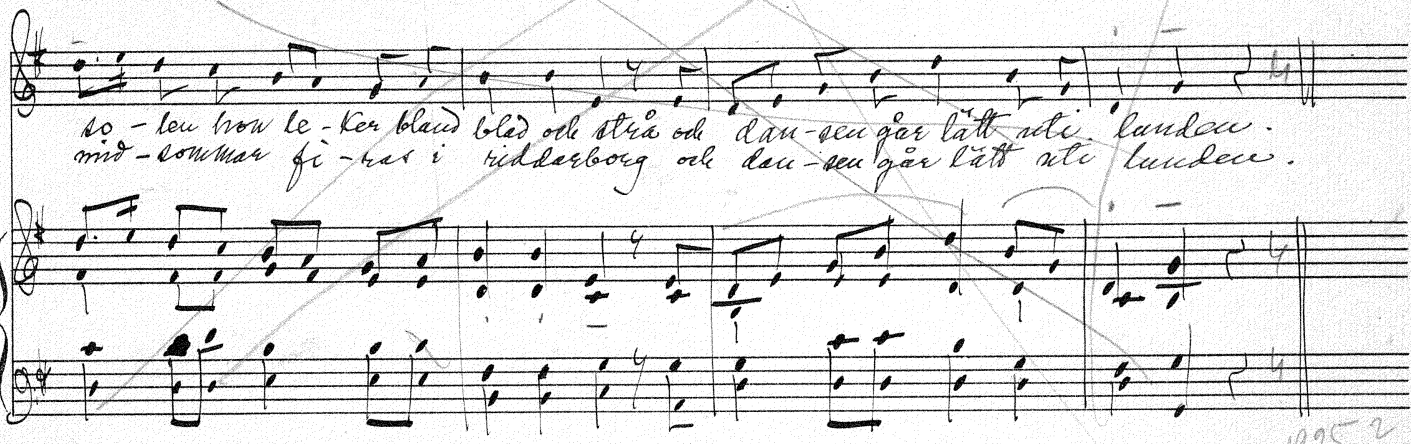 so-len hon le-ker bland blad och strå och dan-sen går lätt uti lunden.
mid-sommar fi-ras i riddarborg och dan-sen går lätt uti lunden.